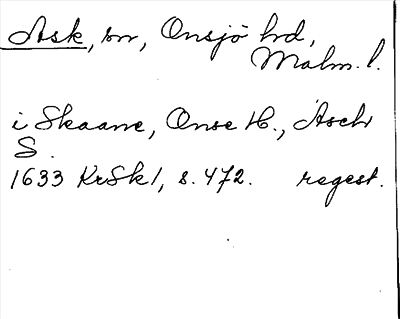 Ask, sn, Onsjö hd,
Malm. l.
i Skaane, Onse H., Asch
S.
1633 KrSk1, s. 472. regest.